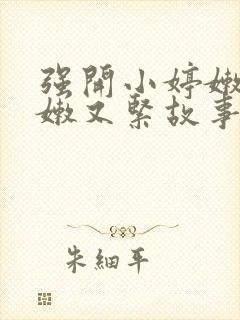 强開小婷嫩
嫩又緊故事
朱細平